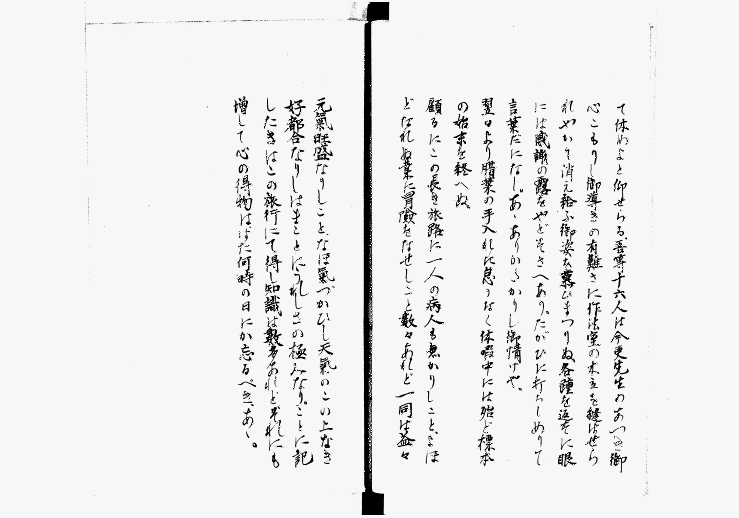 て休めよと仰せらる、吾等十六人は今更先生のあつき御
心こもりし御導きの有難さに作法室の木立を縫はせら
れやがて消え給ふ御姿を慕ひまつりぬ各踵を返すに眼
には感謝の露をやどすさへあり。たがひに打ちしめりて
言葉だになし。あゝありがたかりし御情けや。
翌日より腊葉の手入れに怠りなく休暇中には殆ど標本
の始末を終へぬ。
顧るにこの長き旅路に一人の病人も無かりしこと、よほ
どなれぬ業に冒険をなせしこと数々あれど一同は益々
元氣旺盛なりしこと、なほ氣づかひし天氣のこの上なき
好都合なりしはまことにうれしさの極みなり。ことに記
したきはこの旅行にて得し知識は数多あれどそれにも
増して心の得物はまた何時の日にか忘るべき、あゝ。